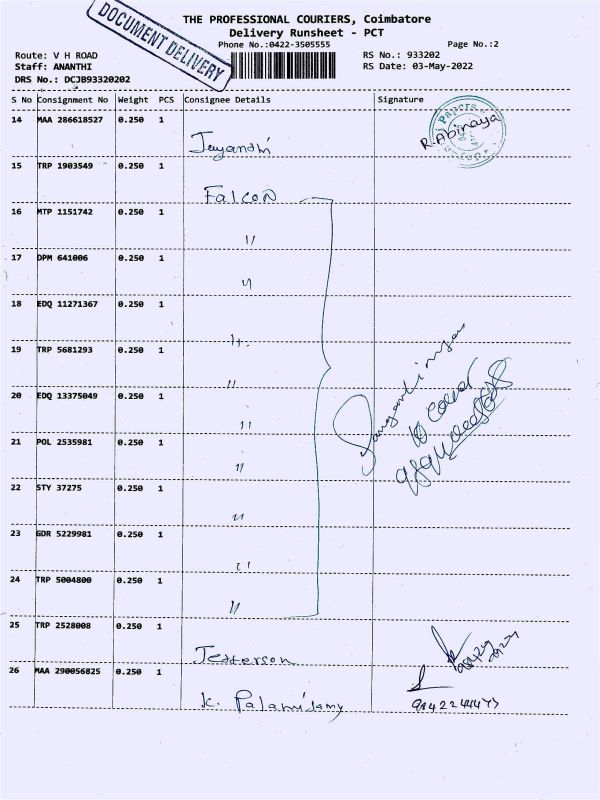 DOCUMENT DELIVERY
THE PROFESSIONAL COURIERS, Coimbatore
Delivery Runsheet - PCT
Phone No.:0422-3505555
Page No.:2
Route: V H ROAD
RS No.: 933202
Staff: ANANTHI
RS Date: 03-May-2022
DRS No.: DCJB93320202
S No Consignment No Weight PCS Consignee Details Signature
14 MAA 286618527 0.250 1
R. Abinaya
Jayandhi
15 TRP 1903549 0.250 1
Falcon
16 MTP 1151742 0.250 1
"
17 DPM 641006 0.250 1
"
18 EDQ 11271367 0.250 1
"
19 TRP 5681293 0.250 1
"
20 EDQ 13375049 0.250 1
"
21 POL 2535981 0.250 1
"
22 STY 37275 0.250 1
"
23 GDR 5229981 0.250 1
"
24 TRP 5004800 0.250 1
"
10 cover
25 TRP 2528008 0.250 1
Jefferson
26 MAA 290056825 0.250 1
K. Palanisamy